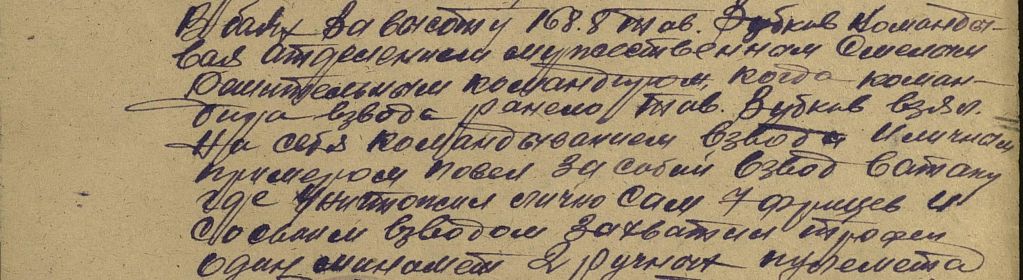 В боях за высоту 168.8 тов. Зубков командо-
вал отделением мужественном смелом
решительным командиром, когда коман-
дира взвода ранело тов. Зубков взял
на себя командыванием взвода и личным
примером повел за собой взвод ватаку
где уничтожил лично сам 7 фрицев и
со своим взводом захватил трофеи
один миномет 2 ручных пулемета